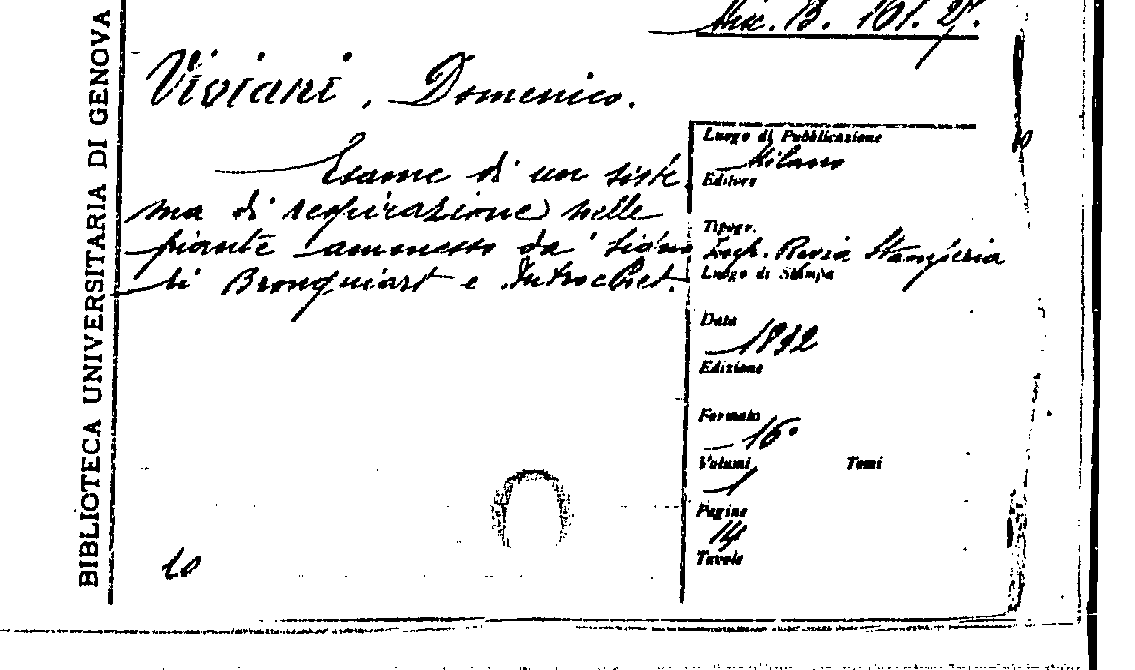 Misc. B. 161. 27.
BIBLIOTECA UNIVERSITARIA DI GENOVA
Viviani, Domenico.
Esame di un siste
ma di respirazione nelle
piante ammesso da' signo
ri Bronguiart e Dutrochet.
Luogo di Pubblicazione
Milano
Editore
Tipogr.
Imp. Regia Stamperia
Luogo di Stampa
Data
1832
Edizione
Formato
16°
Volumi Tomi
1
Pagine
14
Tavole